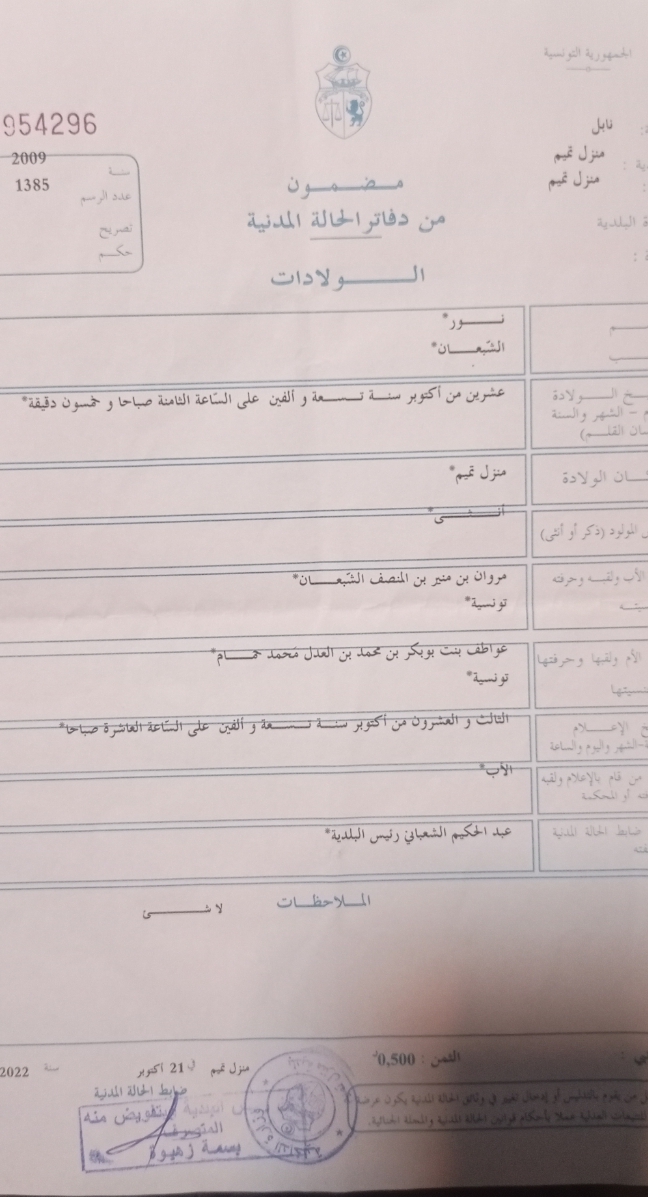 الجمهورية التونسية
954296
نابل
منزل تميم
منزل تميم
البلدية
سنة 2009
عدد الرسم 1385
تصريح
حكم
مضمون
من دفاتر الحالة المدنية
الولادات
نور*
الشبعان*
الولادة
الشهر والسنة
القلم)
عشرين من أكتوبر سنة تسعة و ألفين على السّاعة الثامنة صباحا و خمسون دقيقة*
الولادة
منزل تميم*
المولود (ذكر أو أنثى)
أنثى*
الأب ولقبه وحرفته
مروان بن منير بن المنصف الشّبعان*
تونسية*
الأم ولقبها وحرفتها
عواطف بنت بوبكر بن محمد بن العدل محمد حمام*
تونسية*
الإعلام
الشهر واليوم والساعة
الثالث و العشرون من أكتوبر سنة تسعة و ألفين على السّاعة العاشرة صباحا*
من قام بالإعلام ولقبه
أو المحكمة
الأب*
ضابط الحالة المدنية
عبد الحكيم الشعباني رئيس البلدية*
الملاحظات
لا شئ
الثمن : 0,500
منزل تميم في 21 أكتوبر سنة 2022
ضابط الحالة المدنية
من يقوم بالتدليس أو إدخال تغيير في وثائق الحالة المدنية يكون عرضة
للتتبعات العدلية عملا بأحكام قوانين الحالة المدنية والمجلة الجنائية.
بتفويض منه
المتصرف
بسمة زهيوة